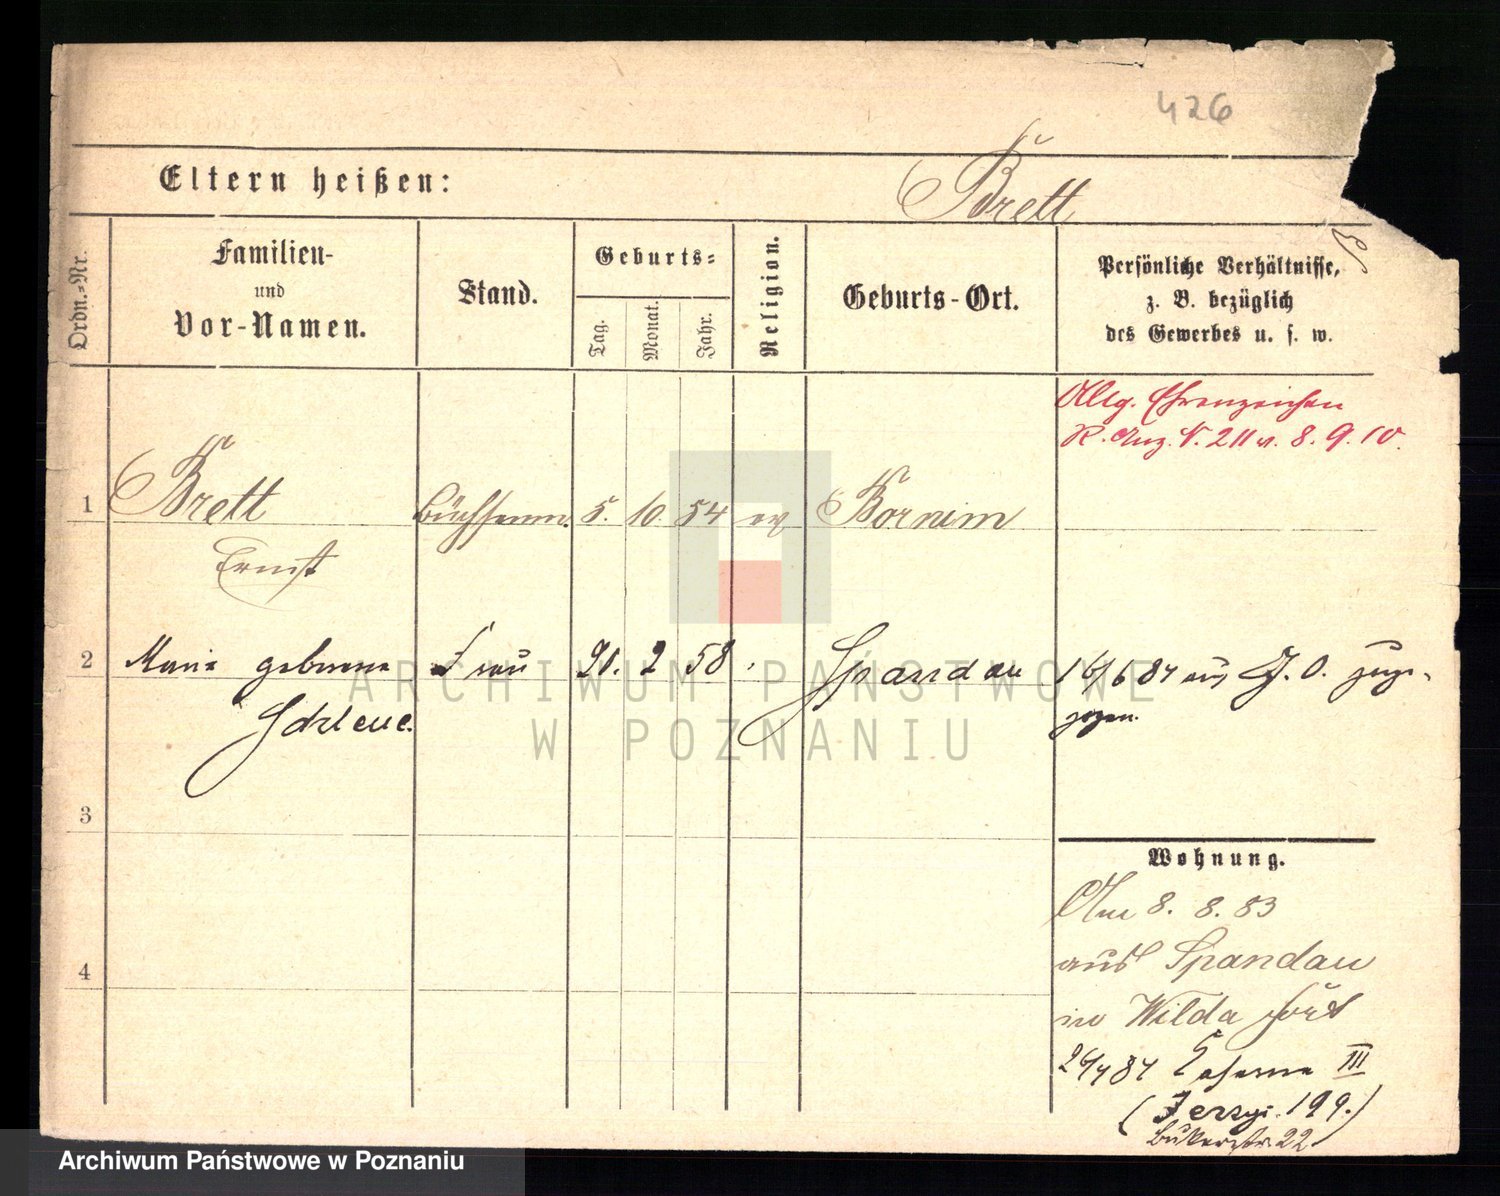 426
Eltern heißen: Brett
Ordn.-Nr.
Familien-
und
Vor-Namen.
Stand.
Geburts-
Tag.
Monat.
Jahr.
Religion.
Geburts-Ort.
Persönliche Verhältnisse,
z. B. bezüglich
des Gewerbes u. s. w.
Allg. Ehrenzeichen
R. Anz. N. 211 v. 8. 9. 10.
1 Brett Büchsenm. 5. 10. 54 ev Bornim
Ernst
2 Marie geborene Frau 21. 2 58 Spandau 16/6 84 aus J. O. zuge-
zogen.
3
4
Wohnung.
Am 8. 8. 83
aus Spandau
in Wilda fort
26/4 84 Caserne III
(Jerzyi. 199.)
Bukerstr. 22.
ARCHIWUM PAŃSTWOWE
W POZNANIU
Archiwum Państwowe w Poznaniu